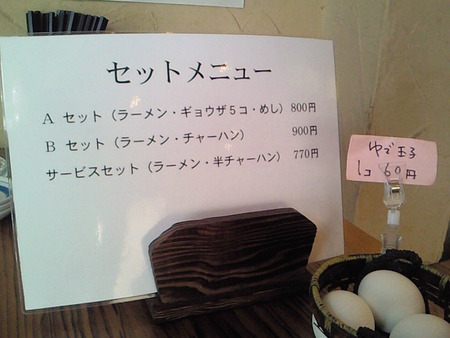 セットメニュー
A セット（ラーメン・ギョウザ５コ・めし）800円
B セット（ラーメン・チャーハン） 900円
サービスセット（ラーメン・半チャーハン） 770円
ゆで玉子
1コ 60円